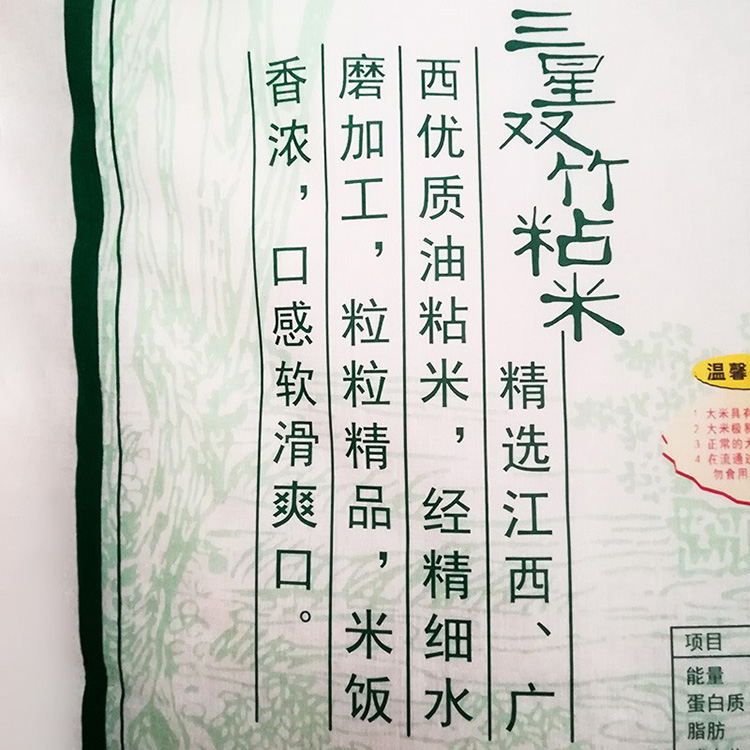 三星双竹粘米
精选江西、广
西优质油粘米，经精细水
磨加工，粒粒精品，米饭
香浓，口感软滑爽口。
温馨
1 大米具有
2 大米极易
3 正常的大
4 在流通过
勿食用
项目
能量
蛋白质
脂肪